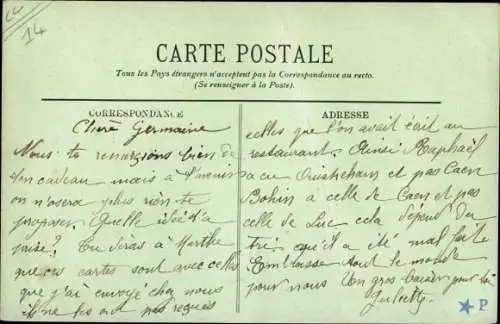 14
CARTE POSTALE
Tous les Pays étrangers n'acceptent pas la Correspondance au recto.
(Se renseigner à la Poste).
CORRESPONDANCE
Chère Germaine
Nous te remercions bien de
ton cadeau mais à l'avenir
on n'osera plus rien te
proposer. Quelle idée d'a
Tu diras à Marthe
que ces cartes sont avec celles
que j'ai envoyé chez nous
il ne les ont pas reçues
ADRESSE
celles que l'on avait écrit au
restaurant. Ainsi Raphaël
a eu Ouistreham et pas Caen
à celle de Caen et pas
celle de Luc cela dépend du
tri qu'il a été mal fait
Embrasse tout le monde
pour nous Un gros baiser pour toi
Juliette
P